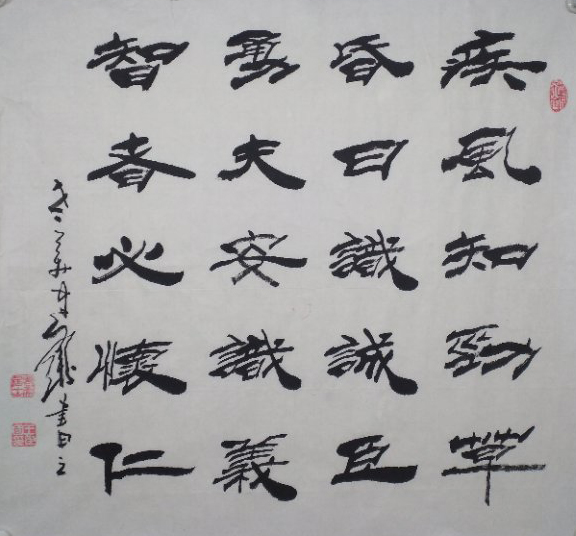 疾風知勁草
昏日識誠臣
勇夫安識義
智者必懷仁